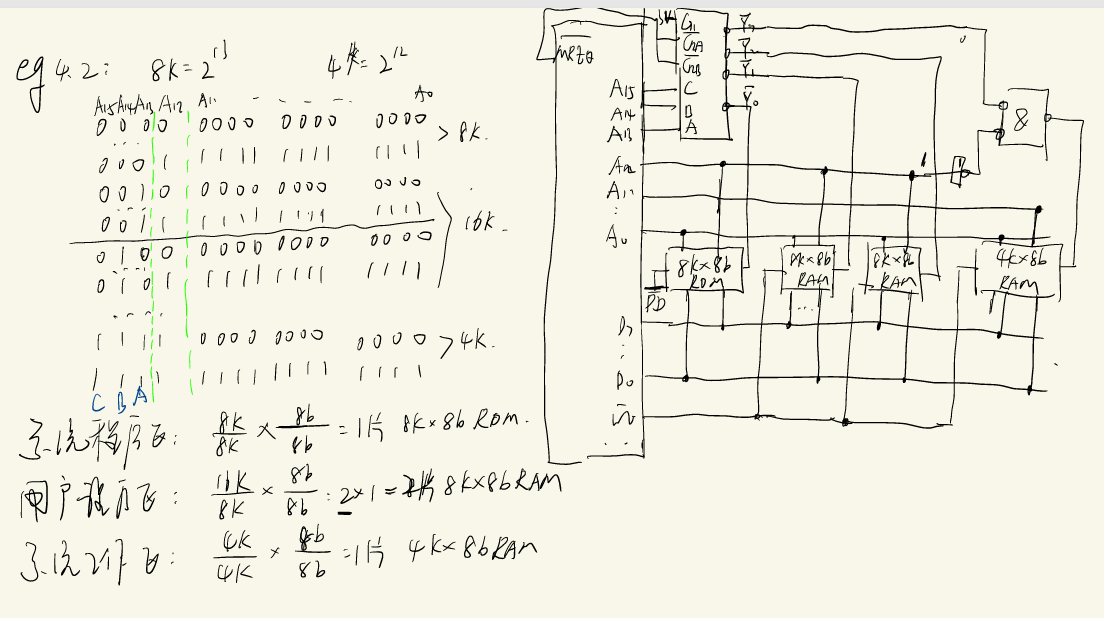 eg 4.2: 8K=2^13 4K=2^12
A15 A14 A13 A12 A11 - - - - A0
0 0 0 0 0000 0000 0000 >8K.
...
0 0 0 1 1111 1111 1111
0 0 1 0 0000 0000 0000
...
0 0 1 1 1111 1111 1111 16K.
0 1 0 0 0000 0000 0000
...
0 1 0 1 1111 1111 1111
....
1 1 1 1 0000 0000 0000 >4K.
1 1 1 1 1111 1111 1111
C B A
系统程序区: 8K/8K × 8b/8b = 1片 8K×8b ROM.
用户程序区: 16K/8K × 8b/8b = 2×1 = 2片 8K×8b RAM
系统工作区: 4K/4K × 8b/8b = 1片 4K×8b RAM
MREQ
G1
G2A
G2B
C
B
A
Y0
A15
A14
A13
A12
A11
:
A0
&
1
8K×8b ROM
8K×8b RAM
...
8K×8b RAM
4K×8b RAM
PD
D7
:
D0
W
...